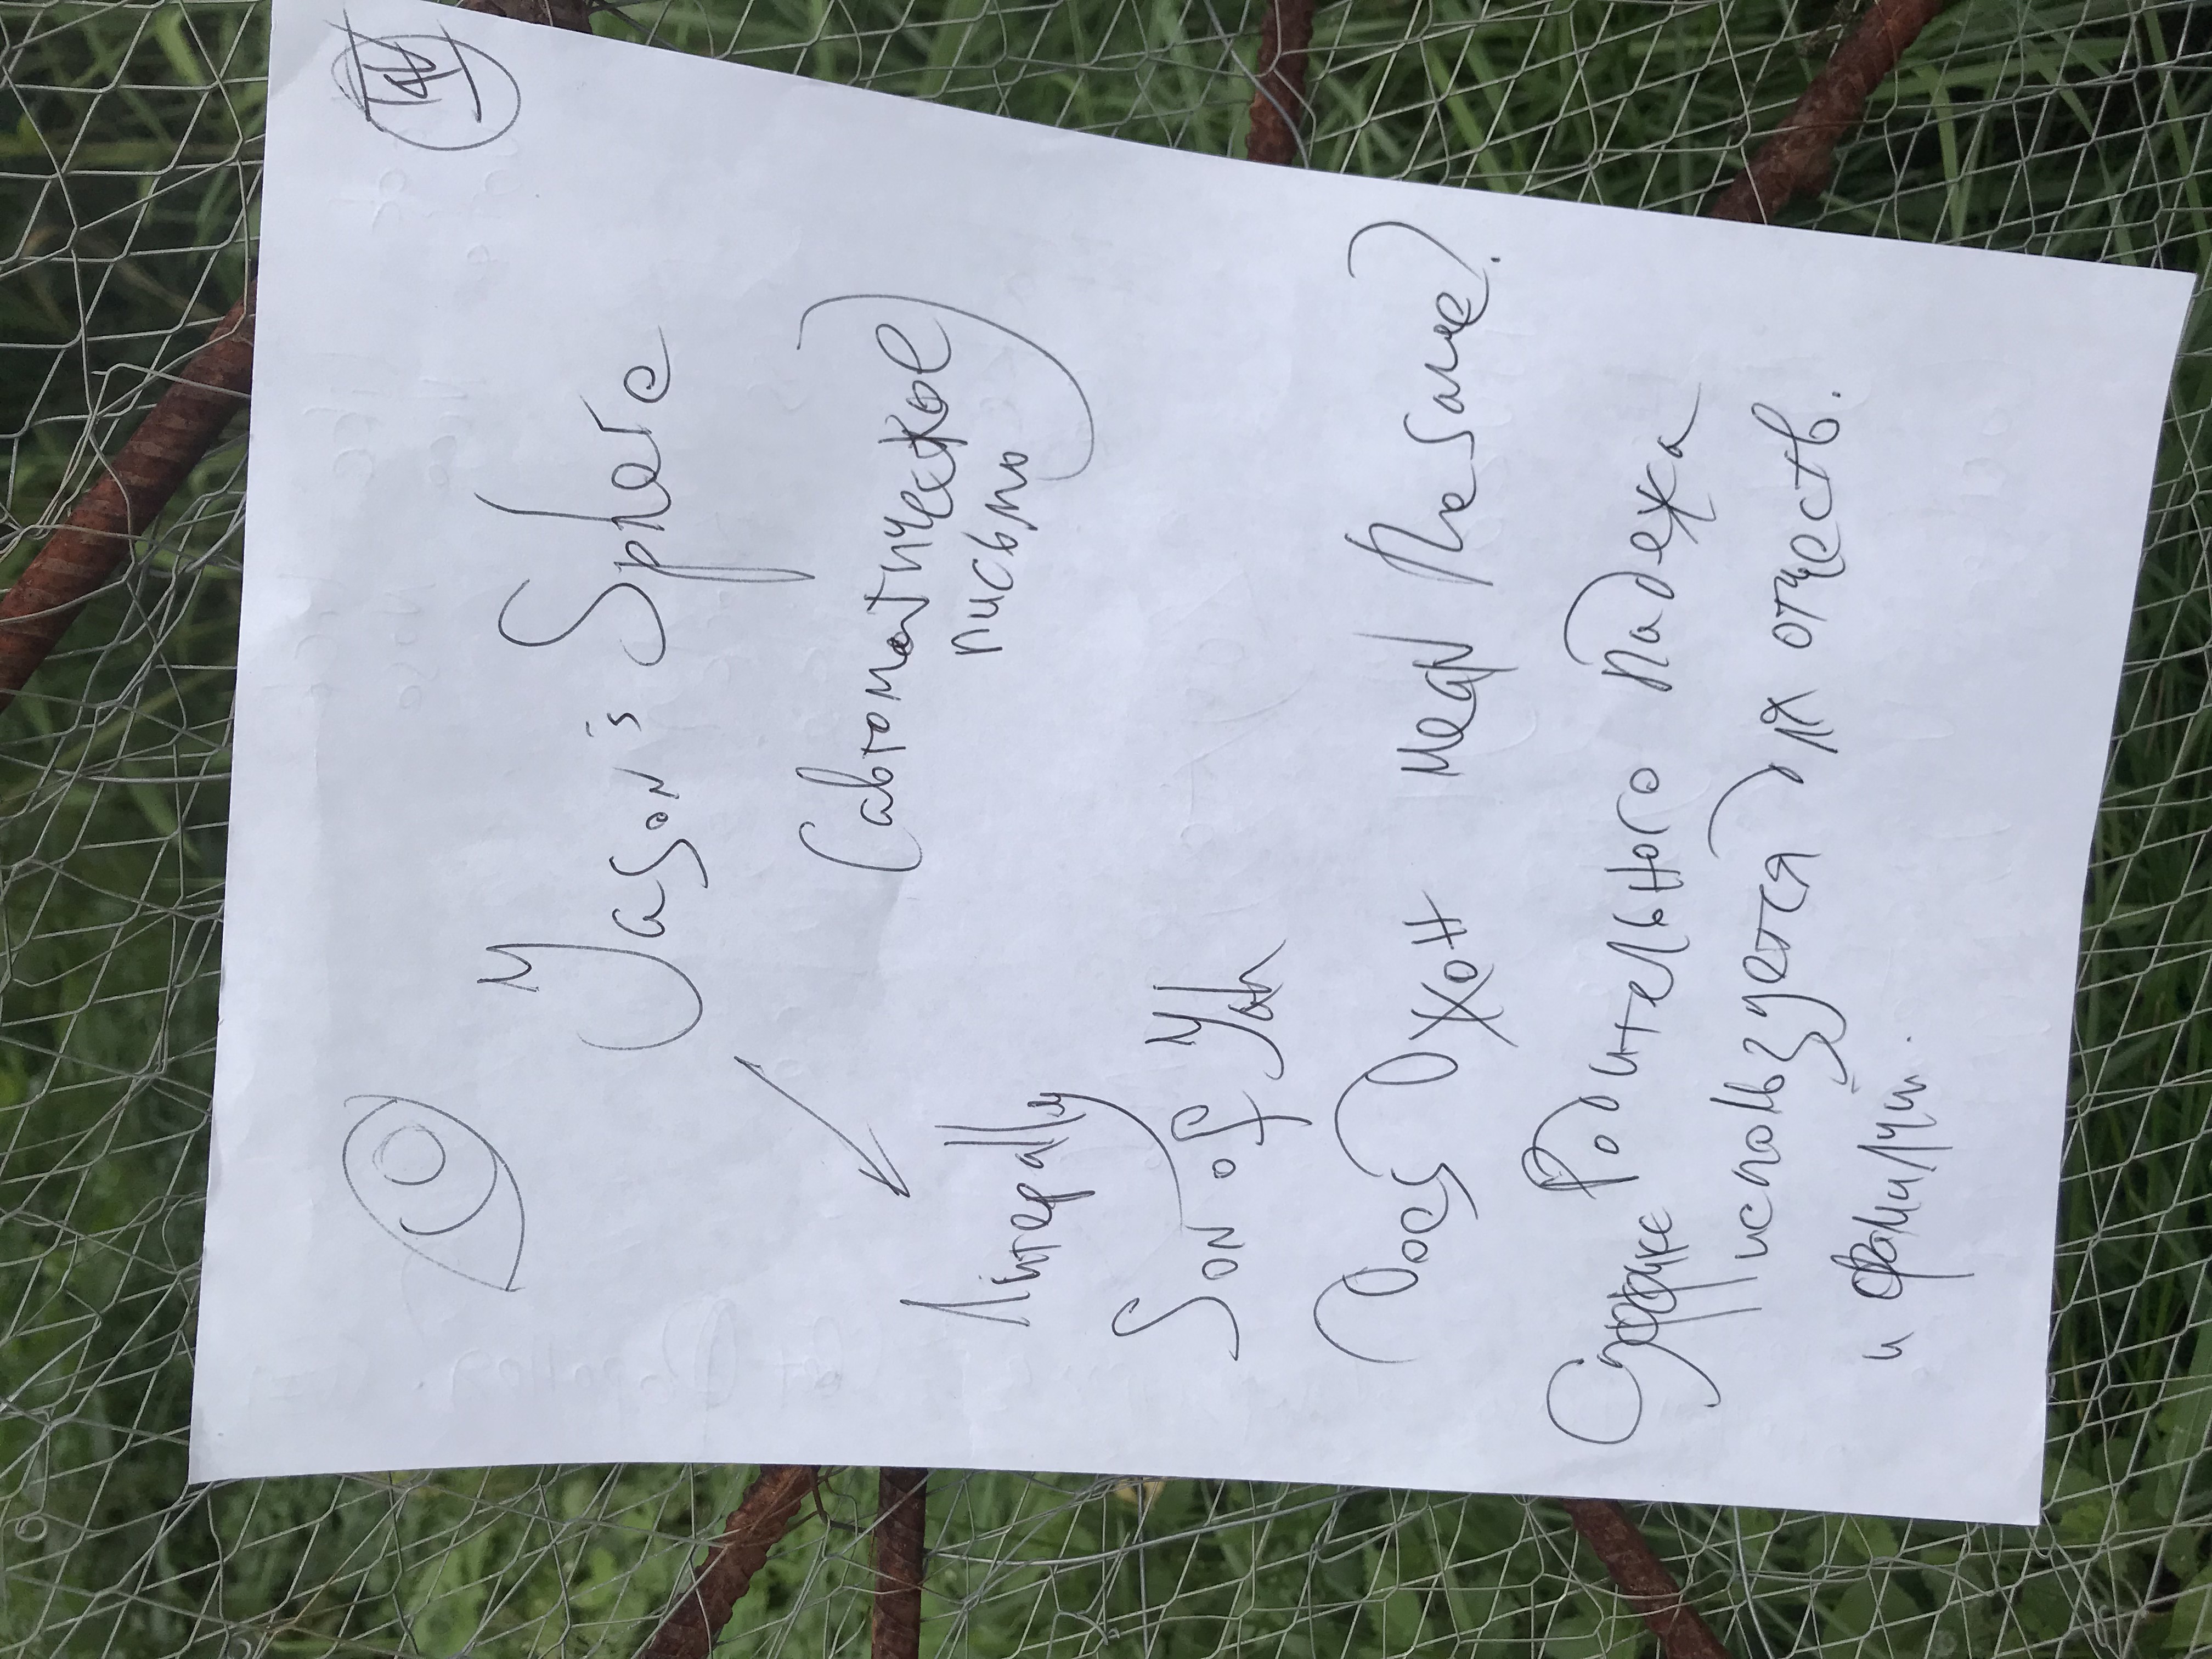 IV
Yason's Sphere
(автоматическое
письмо)
Литерally
Son of Yah
Does Джон mean the same?
Суффикс Родительного падежа
используется для отчеств.
и фамилий.